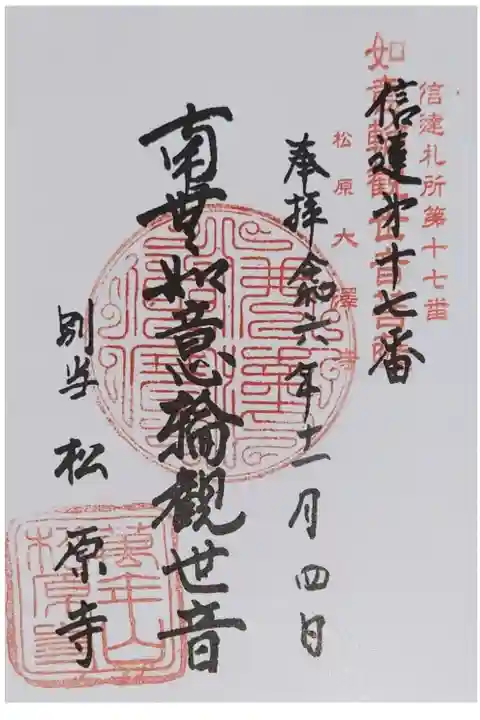 信達札所第十七番
如意輪観世音菩薩
松原大澤寺
信達第十七番
奉拝 令和六年十一月四日
南無如意輪観世音
別当 松原寺